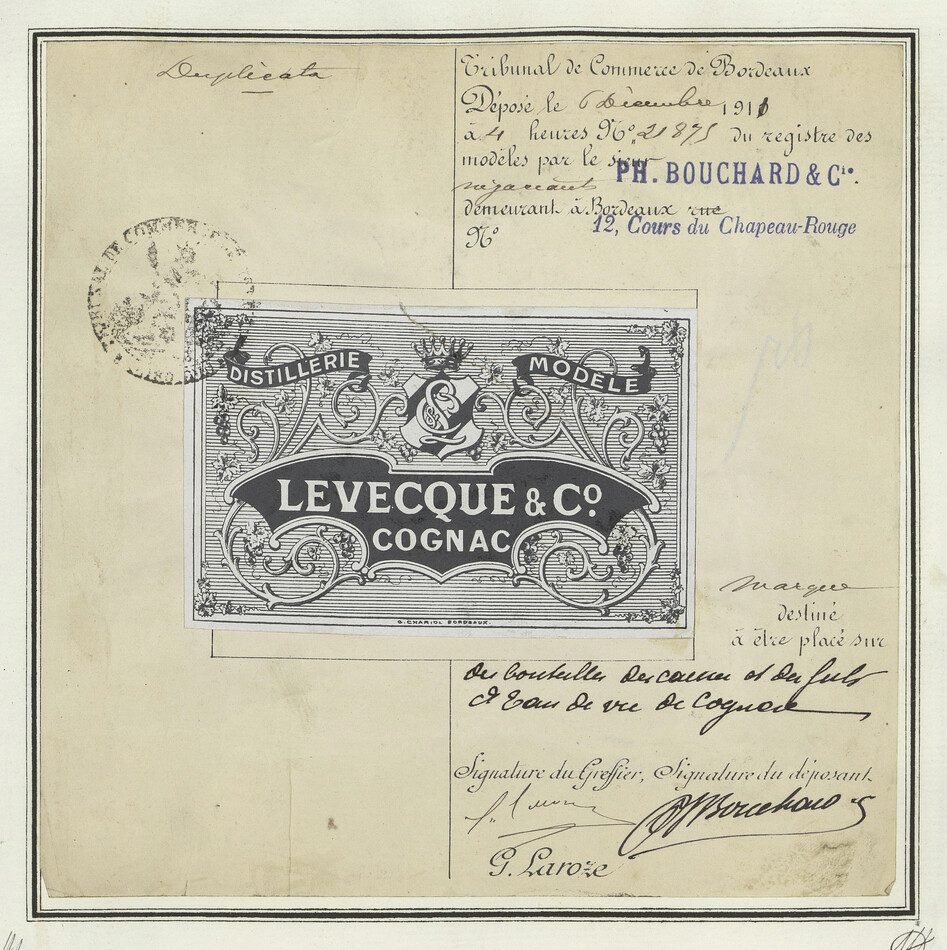 Duplicata
Tribunal de Commerce de Bordeaux
Déposé le 6 Décembre 1911
à 4 heures Nº 21875 du registre des
modèles par le sieur
PH. BOUCHARD & Cie.
négociants
demeurant à Bordeaux rue
12, Cours du Chapeau-Rouge
Nº
TRIBUNAL DE COMMERCE
DISTILLERIE MODELE
LEVECQUE & Cº.
COGNAC
G. CHARIOL BORDEAUX.
marque
destiné
à être placé sur
des bouteilles des caisses et des futs
d'Eau de vie de Cognac
Signature du Greffier, Signature du déposant
Ph Bouchard
G. Laroze